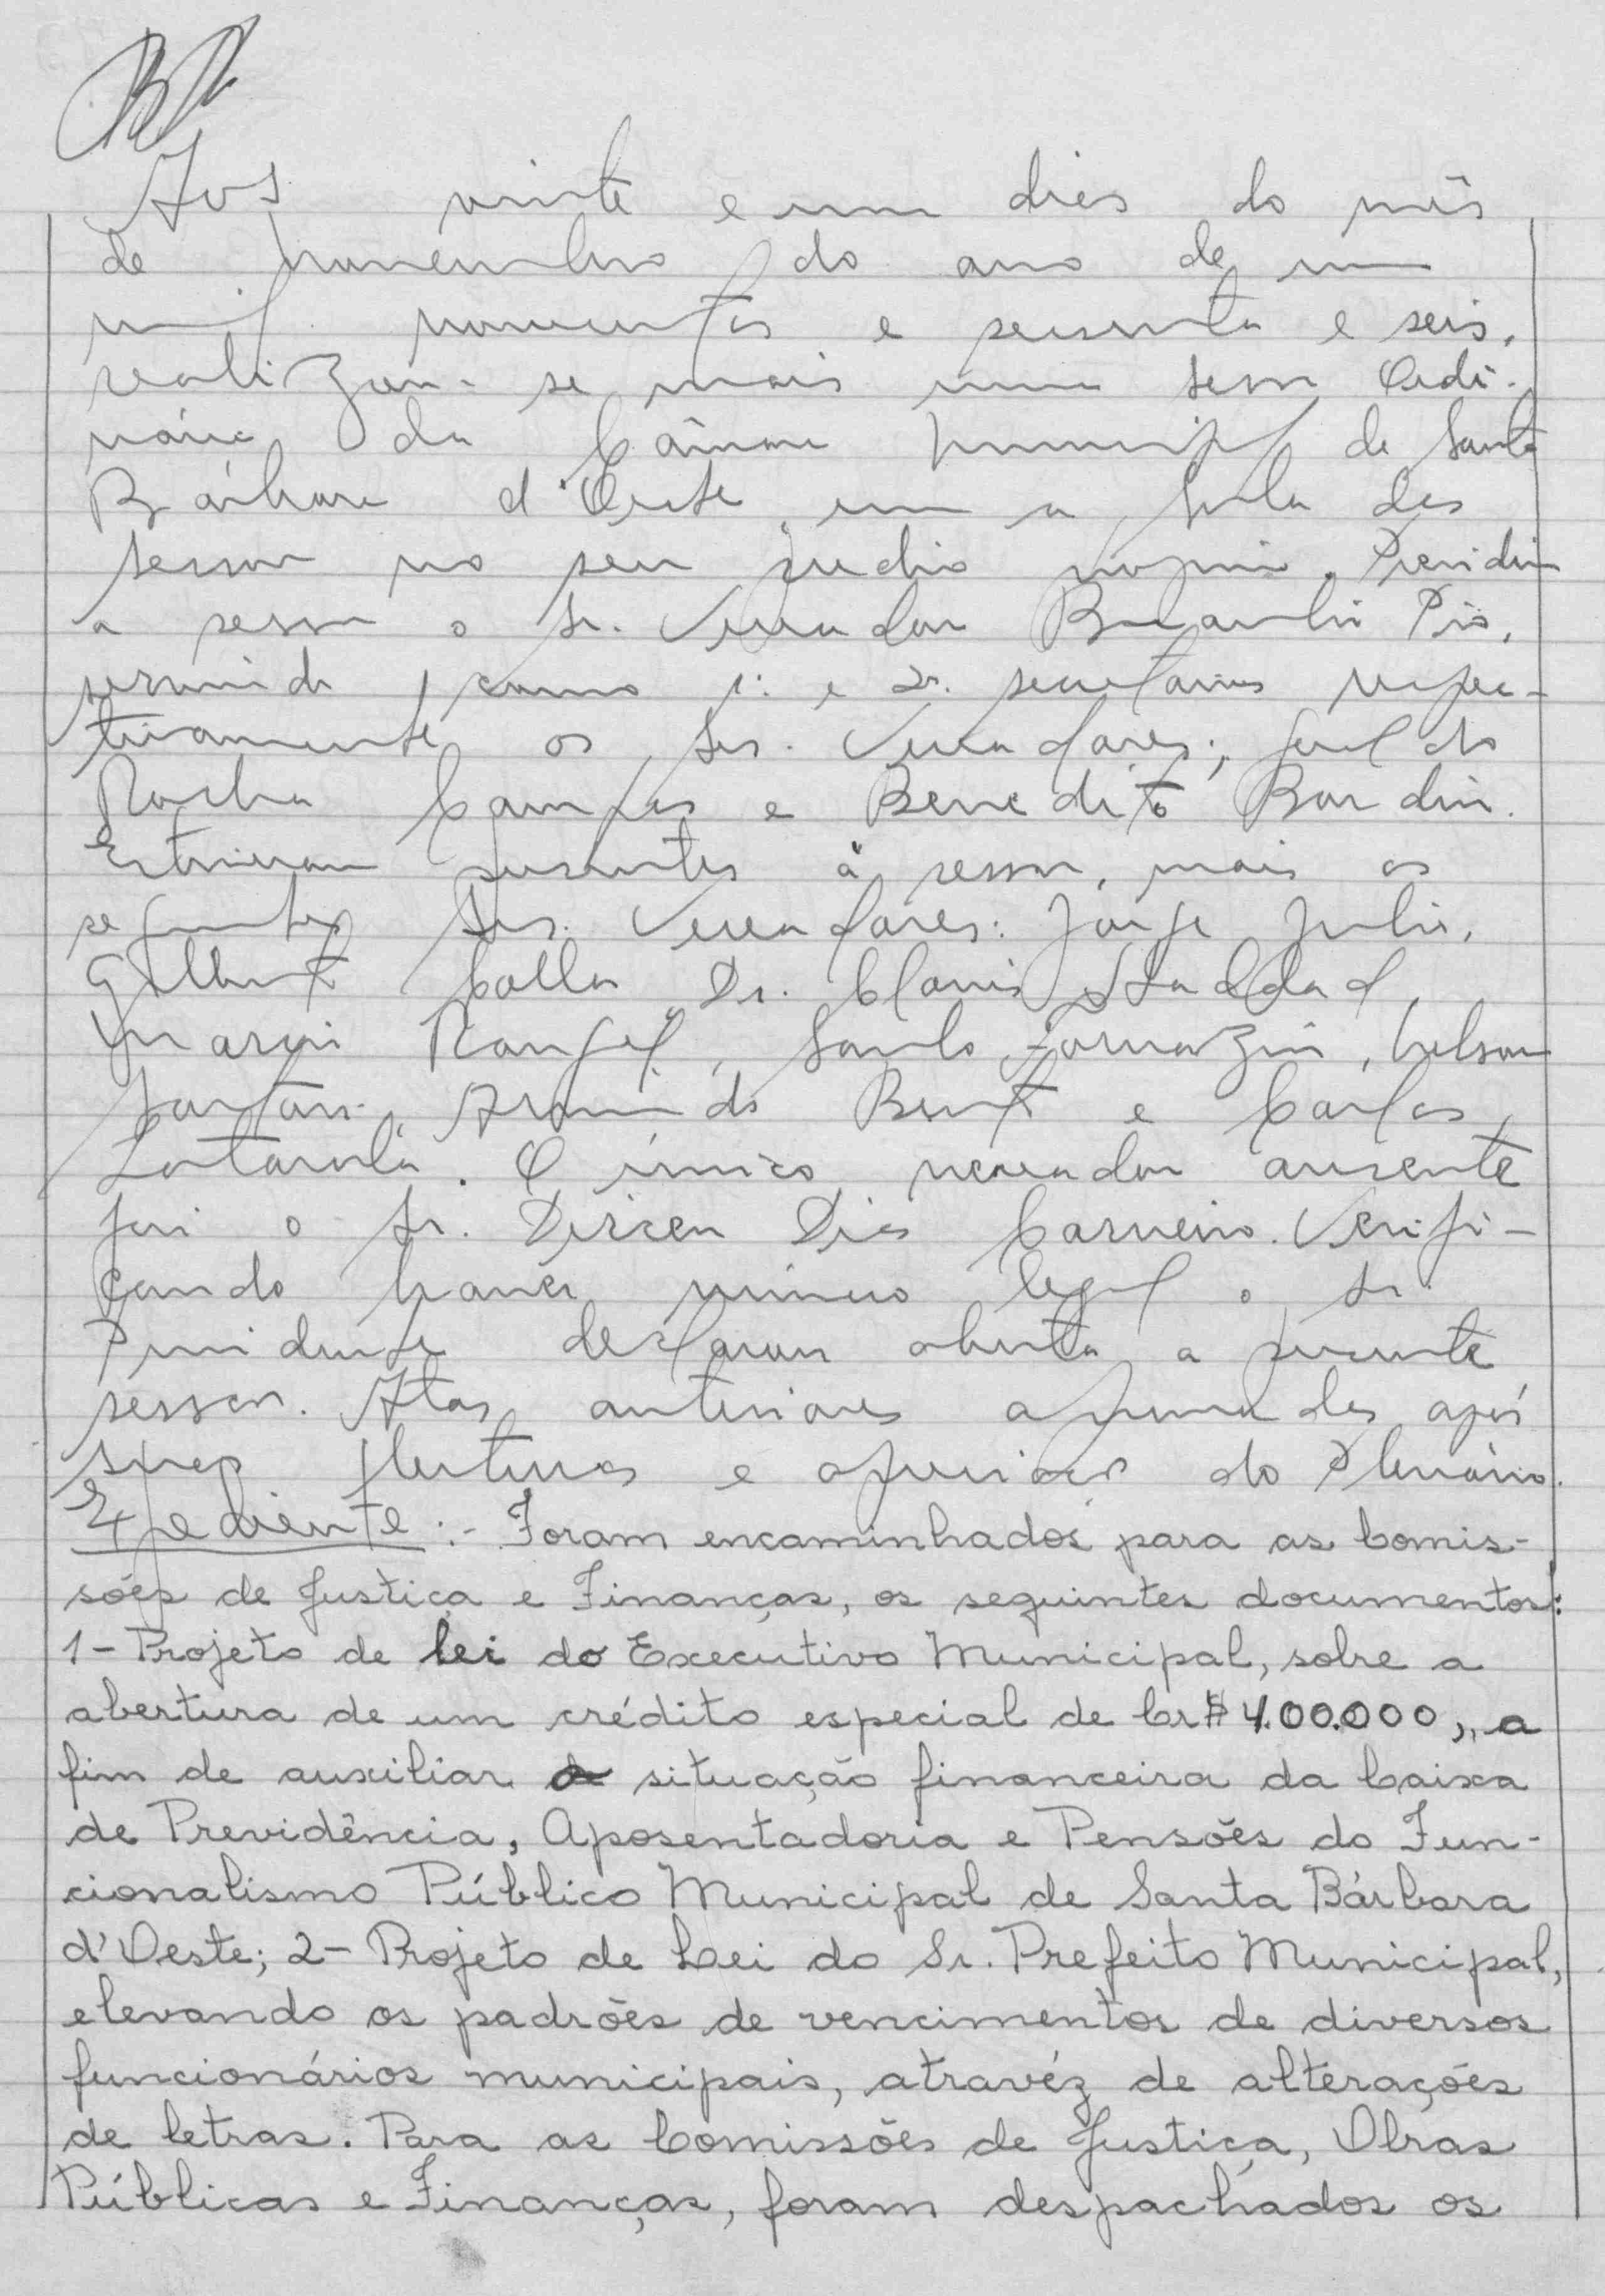 Aos vinte e um dias do mês
de novembro do ano de um
mil novecentos e sessenta e seis,
realizou-se mais uma sessão Ordi-
nária da Câmara Municipal de Santa
Bárbara d'Oeste, em a sala das
sessões no seu prédio próprio. Presidiu
a sessão o Sr. Vereador Braulio Pio,
servindo como 1º e 2º secretarios respec-
tivamente os Srs. Vereadores; Geraldo
Rocha Campos e Benedito Bordin.
Estiveram presentes à sessão, mais os
seguintes Srs. Vereadores: Jorge Julio,
Gilberto Calla Dr. Clovis Haddad,
Rangel, Santo Fornazin, Nelson
Sartori, Armindo Bento e Carlos
. O único vereador ausente
foi o Sr. Dirceu Dias Carneiro. Verifi-
cando haver número legal o Sr.
Presidente declarou aberta a presente
sessão. Atas anteriores aprovadas após
suas leituras e apreciação do Plenário.
Expediente:- Foram encaminhados para as Comis-
sões de Justiça e Finanças, os seguintes documentos:
1- Projeto de lei do Executivo Municipal, sobre a
abertura de um crédito especial de Cr$ 400.000,, a
fim de auxiliar a situação financeira da Caixa
de Previdência, Aposentadoria e Pensões do Fun-
cionalismo Público Municipal de Santa Bárbara
d'Oeste; 2- Projeto de Lei do Sr. Prefeito Municipal,
elevando os padrões de vencimentos de diversos
funcionários municipais, atravéz de alterações
de letras. Para as Comissões de Justiça, Obras
Públicas e Finanças, foram despachados os